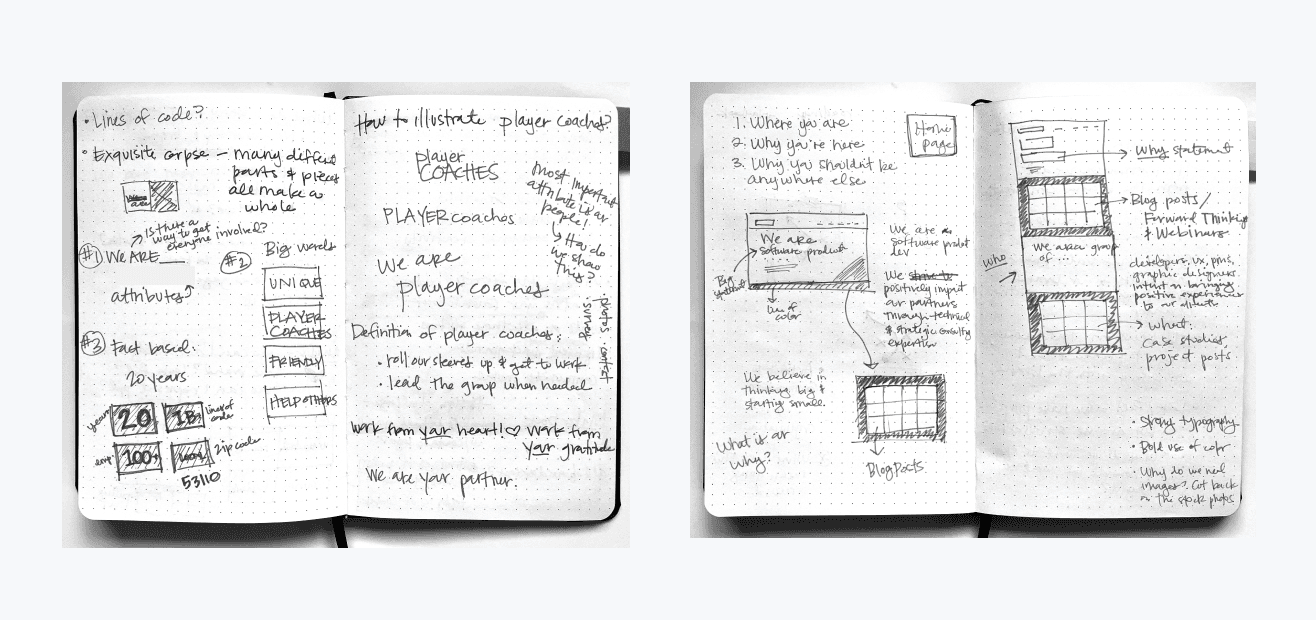 • Lines of code?
• Exquisite corpse – many different
parts & pieces
all make a
whole
We are
Is there a
way to get
everyone involved?
#1 We ARE___
attributes
#2 Big words
UNIQUE
PLAYER
COACHES
FRIENDLY
HELP OTHERS
#3 Fact based:
20 years
years
20
1B+
lines of
code
emp.
100+
zip code
53110
How to illustrate player coaches?
player
COACHES
PLAYER coaches
We are
player coaches
Most important
attribute is our
people!
How do
we show
this?
• photos
• survey
• contest
Definition of player coaches:
• roll our sleeves up & get to work
• lead the group when needed
Work from your heart! Work from
your gratitude
We are your partner.
1. Where you are
2. Why you're here
3. Why you shouldn't be
anywhere else
Home
page
We are
Software product
Big
statement
line of
color
We are a
Software product
dev
We strive to
positively impact
our partners
through technical
& strategic consulting
expertise
We believe in
thinking big &
starting small.
What is our
why?
Blog Posts
Why statement
Blog posts/
Forward Thinking
& Webinars
who
We are a group
of ...
developers, ux, pms,
graphic designers
intent on bringing
positive experiences
to our clients
What:
case studies,
project posts
• Strong typography
• Bold use of color
• Why do we need
images? Cut back
on the stock photos